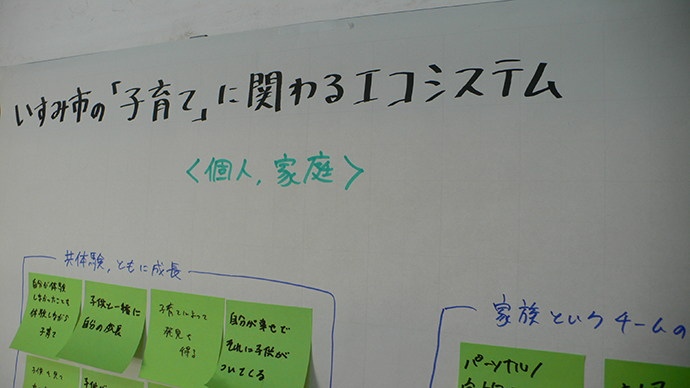 いすみ市の「子育て」に関わるエコシステム
<個人,家庭>
共体験,ともに成長
自分が体験
しなかったことを
体験しながら
子育て
子供と一緒に
自分の成長
子育てによって
発見を
得る
自分が幸せで
それに子供が
ついてくる
家族というチームの
パーソナル/